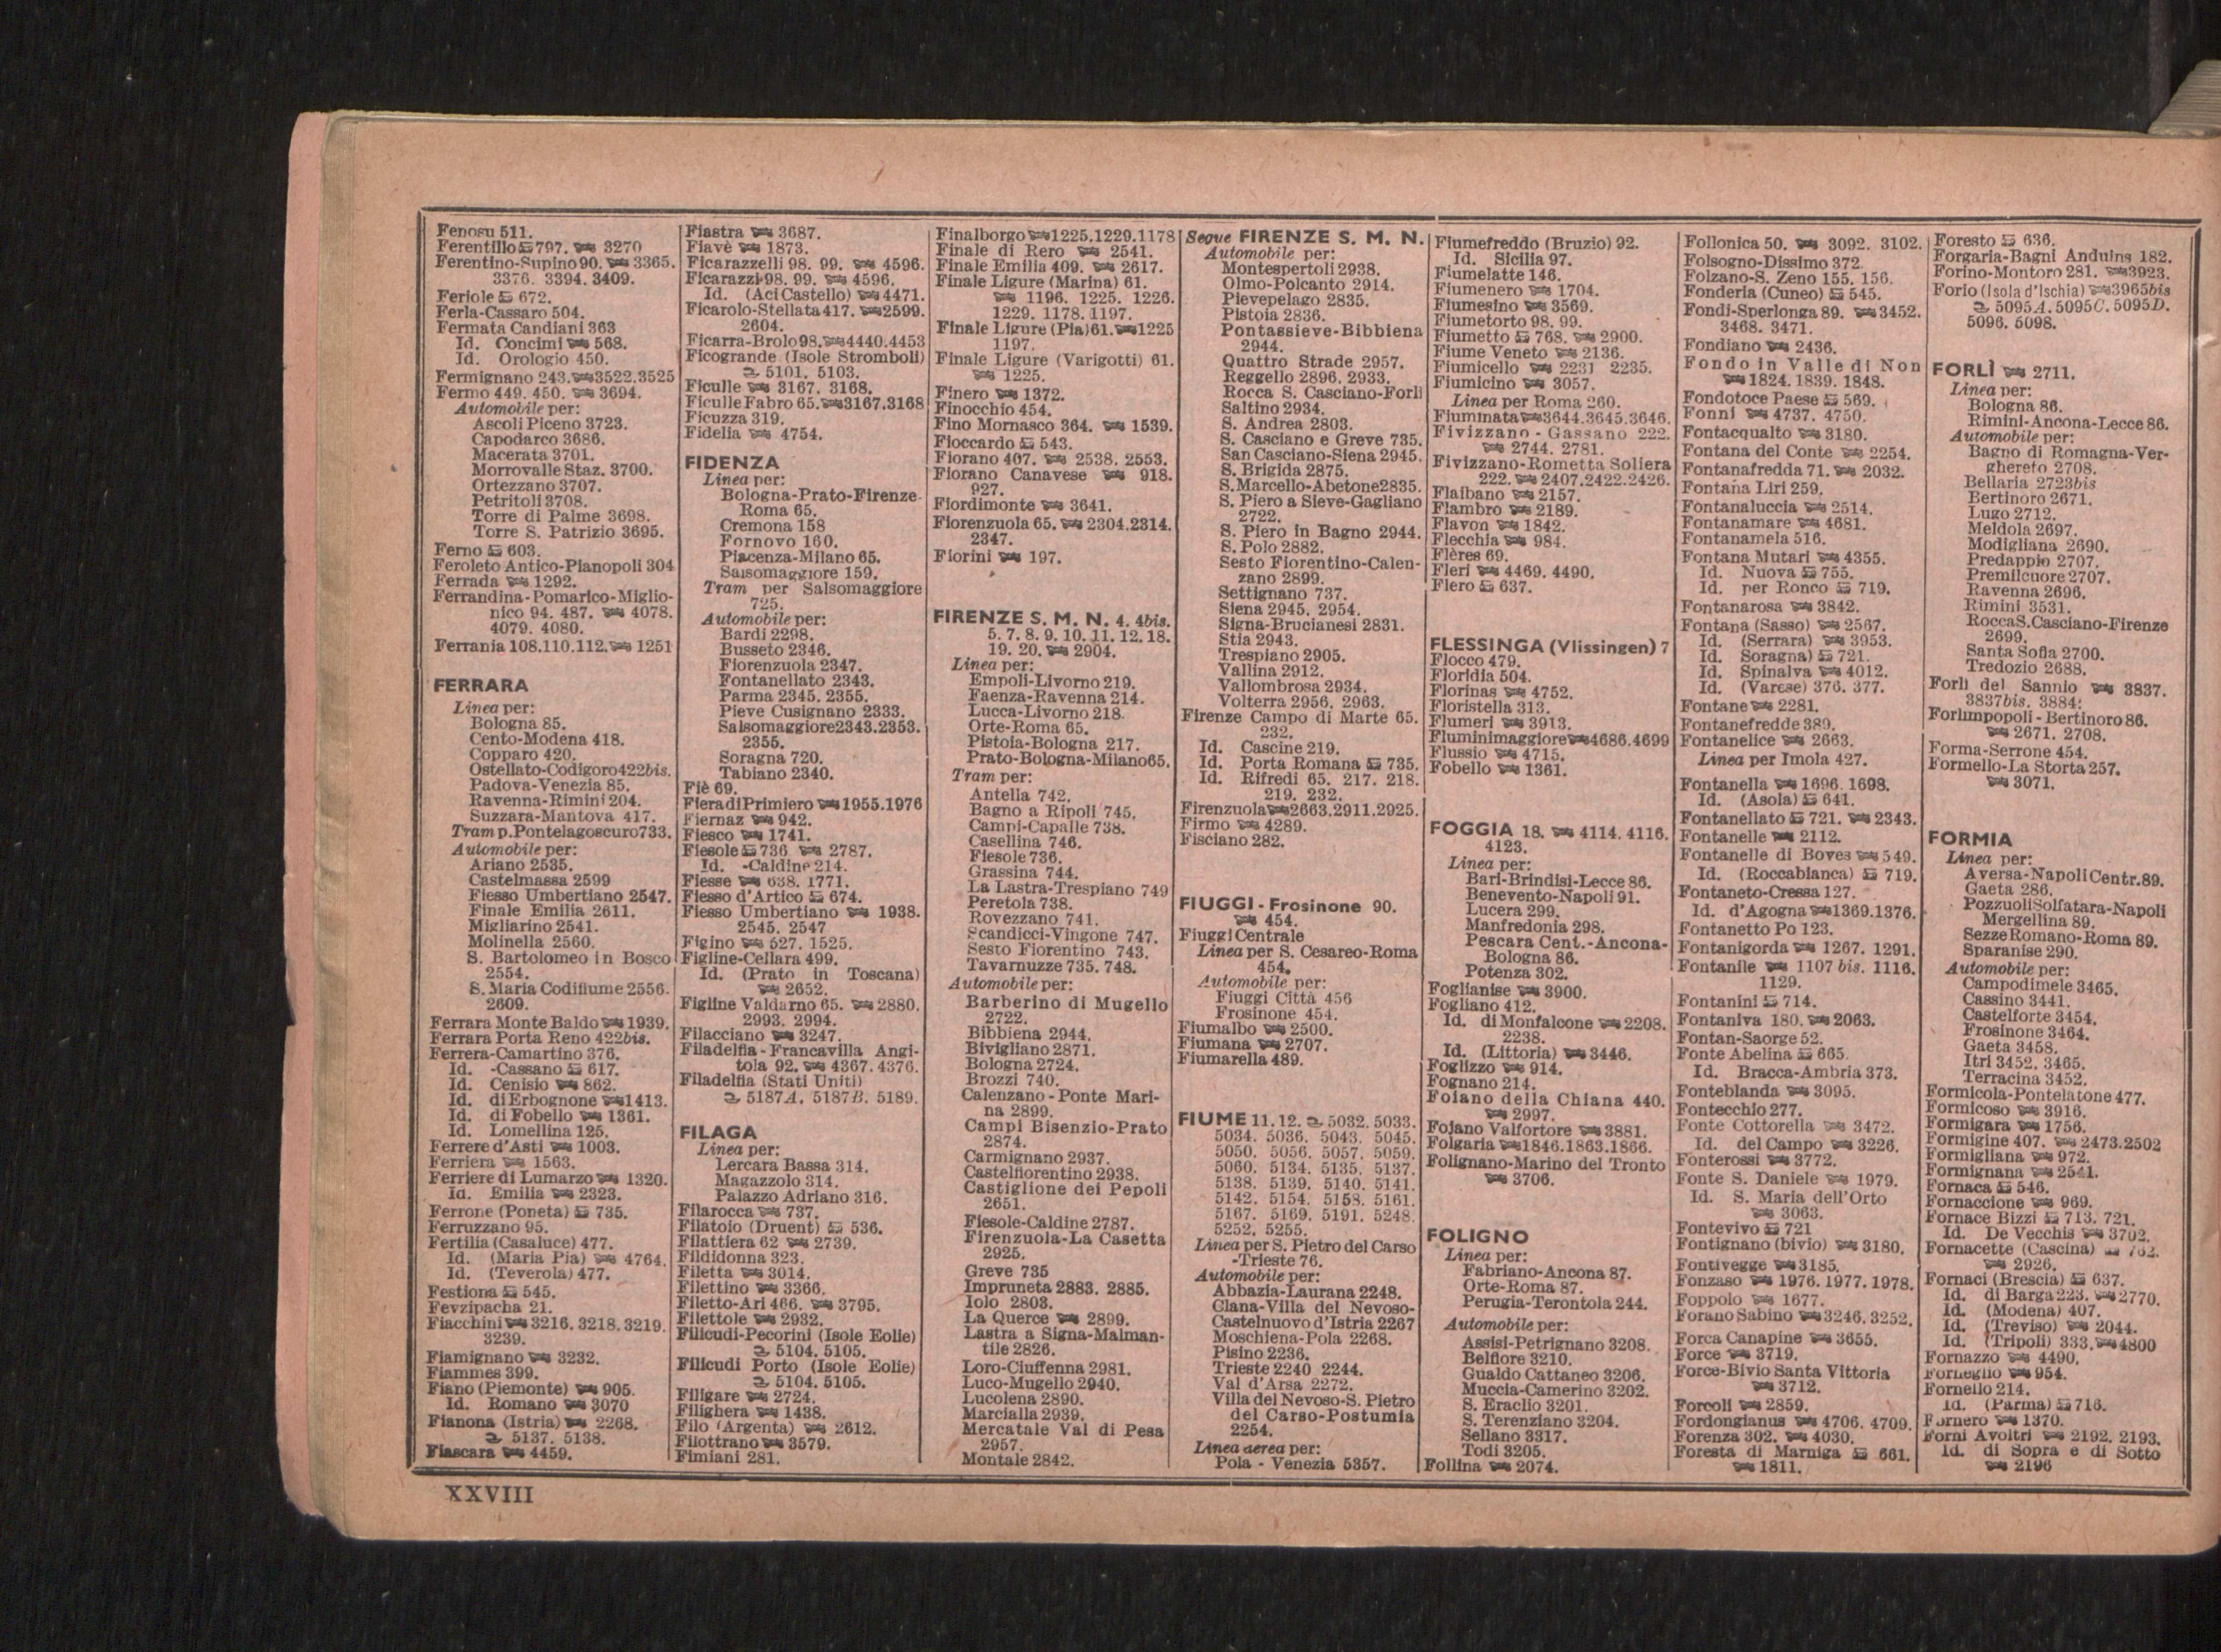 Fenosu 511.
Ferentillo 797. 3270
Ferentino-Supino 90. 3365.
3376. 3394. 3409.
Feriole 672.
Ferla-Cassaro 504.
Fermata Candiani 363
Id. Concimi 568.
Id. Orologio 450.
Fermignano 243. 3522.3525
Fermo 449. 450. 3694.
Automobile per:
Ascoli Piceno 3723.
Capodarco 3686.
Macerata 3701.
Morrovalle Staz. 3700.
Ortezzano 3707.
Petritoli 3708.
Torre di Palme 3698.
Torre S. Patrizio 3695.
Ferno 603.
Feroleto Antico-Pianopoli 304
Ferrada 1292.
Ferrandina-Pomarico-Miglio-
nico 94. 487. 4078.
4079. 4080.
Ferrania 108.110.112. 1251
FERRARA
Linea per:
Bologna 85.
Cento-Modena 418.
Copparo 420.
Ostellato-Codigoro 422bis.
Padova-Venezia 85.
Ravenna-Rimini 204.
Suzzara-Mantova 417.
Tram p. Pontelagoscuro 733.
Automobile per:
Ariano 2535.
Castelmassa 2599
Fiesso Umbertiano 2547.
Finale Emilia 2611.
Migliarino 2541.
Molinella 2560.
S. Bartolomeo in Bosco
2554.
S. Maria Codifiume 2556.
2609.
Ferrara Monte Baldo 1939.
Ferrara Porta Reno 422bis.
Ferrera-Camartino 376.
Id. -Cassano 617.
Id. Cenisio 862.
Id. di Erbognone 1413.
Id. di Fobello 1361.
Id. Lomellina 125.
Ferrere d'Asti 1003.
Ferriera 1563.
Ferriere di Lumarzo 1320.
Id. Emilia 2323.
Ferrone (Poneta) 735.
Ferruzzano 95.
Fertilia (Casaluce) 477.
Id. (Maria Pia) 4764.
Id. (Teverola) 477.
Festiona 545.
Fevzipacha 21.
Fiacchini 3216. 3218. 3219.
3239.
Fiamignano 3232.
Fiammes 399.
Fiano (Piemonte) 905.
Id. Romano 3070
Fianona (Istria) 2268.
5137. 5138.
Fiascara 4459.
Fiastra 3687.
Fiavè 1873.
Ficarazzelli 98. 99. 4596.
Ficarazzi 98. 99. 4596.
Id. (Aci Castello) 4471.
Ficarolo-Stellata 417. 2599.
2604.
Ficarra-Brolo 98. 4440.4453
Ficogrande (Isole Stromboli)
5101. 5103.
Ficulle 3167. 3168.
Ficulle Fabro 65. 3167.3168
Ficuzza 319.
Fidelia 4754.
FIDENZA
Linea per:
Bologna-Prato-Firenze-
Roma 65.
Cremona 158
Fornovo 160.
Piacenza-Milano 65.
Salsomaggiore 159.
Tram per Salsomaggiore
725.
Automobile per:
Bardi 2298.
Busseto 2346.
Fiorenzuola 2347.
Fontanellato 2343.
Parma 2345. 2355.
Pieve Cusignano 2333.
Salsomaggiore 2343.2353.
2355.
Soragna 720.
Tabiano 2340.
Fiè 69.
Fiera di Primiero 1955.1976
Fiernaz 942.
Fiesco 1741.
Fiesole 736 2787.
Id. -Caldine 214.
Fiesse 638. 1771.
Fiesso d'Artico 674.
Fiesso Umbertiano 1938.
2545. 2547
Figino 527. 1525.
Figline-Cellara 499.
Id. (Prato in Toscana)
2652.
Figline Valdarno 65. 2880.
2993. 2994.
Filacciano 3247.
Filadelfia-Francavilla Angi-
tola 92. 4367. 4376.
Filadelfia (Stati Uniti)
5187A. 5187B. 5189.
FILAGA
Linea per:
Lercara Bassa 314.
Magazzolo 314.
Palazzo Adriano 316.
Filarocca 737.
Filatoio (Druent) 536.
Filattiera 62 2739.
Fildidonna 323.
Filetta 3014.
Filettino 3366.
Filetto-Ari 466. 3795.
Filettole 2932.
Filicudi-Pecorini (Isole Eolie)
5104. 5105.
Filicudi Porto (Isole Eolie)
5104. 5105.
Filigare 2724.
Filighera 1438.
Filo (Argenta) 2612.
Filottrano 3579.
Fimiani 281.
Finalborgo 1225.1229.1178
Finale di Rero 2541.
Finale Emilia 409. 2617.
Finale Ligure (Marina) 61.
1196. 1225. 1226.
1229. 1178. 1197.
Finale Ligure (Pia) 61. 1225
1197.
Finale Ligure (Varigotti) 61.
1225.
Finero 1372.
Finocchio 454.
Fino Mornasco 364. 1539.
Fioccardo 543.
Fiorano 407. 2538. 2553.
Fiorano Canavese 918.
927.
Fiordimonte 3641.
Fiorenzuola 65. 2304.2314.
2347.
Fiorini 197.
FIRENZE S. M. N. 4. 4bis.
5. 7. 8. 9. 10. 11. 12. 18.
19. 20. 2904.
Linea per:
Empoli-Livorno 219.
Faenza-Ravenna 214.
Lucca-Livorno 218.
Orte-Roma 65.
Pistoia-Bologna 217.
Prato-Bologna-Milano 65.
Tram per:
Antella 742.
Bagno a Ripoli 745.
Campi-Capalle 738.
Casellina 746.
Fiesole 736.
Grassina 744.
La Lastra-Trespiano 749
Peretola 738.
Rovezzano 741.
Scandicci-Vingone 747.
Sesto Fiorentino 743.
Tavarnuzze 735. 748.
Automobile per:
Barberino di Mugello
2722.
Bibbiena 2944.
Bivigliano 2871.
Bologna 2724.
Brozzi 740.
Calenzano-Ponte Mari-
na 2899.
Campi Bisenzio-Prato
2874.
Carmignano 2937.
Castelfiorentino 2938.
Castiglione dei Pepoli
2651.
Fiesole-Caldine 2787.
Firenzuola-La Casetta
2925.
Greve 735
Impruneta 2883. 2885.
Iolo 2803.
La Querce 2899.
Lastra a Signa-Malman-
tile 2826.
Loro-Ciuffenna 2981.
Luco-Mugello 2940.
Lucolena 2890.
Marcialla 2939.
Mercatale Val di Pesa
2957.
Montale 2842.
Segue FIRENZE S. M. N.
Automobile per:
Montespertoli 2938.
Olmo-Polcanto 2914.
Pievepelago 2835.
Pistoia 2836.
Pontassieve-Bibbiena
2944.
Quattro Strade 2957.
Reggello 2896. 2933.
Rocca S. Casciano-Forlì
Saltino 2934.
S. Andrea 2803.
S. Casciano e Greve 735.
San Casciano-Siena 2945.
S. Brigida 2875.
S. Marcello-Abetone 2835.
S. Piero a Sieve-Gagliano
2722.
S. Piero in Bagno 2944.
S. Polo 2882.
Sesto Fiorentino-Calen-
zano 2899.
Settignano 737.
Siena 2945. 2954.
Signa-Brucianesi 2831.
Stia 2943.
Trespiano 2905.
Vallina 2912.
Vallombrosa 2934.
Volterra 2956. 2963.
Firenze Campo di Marte 65.
232.
Id. Cascine 219.
Id. Porta Romana 735.
Id. Rifredi 65. 217. 218.
219. 232.
Firenzuola 2663.2911.2925.
Firmo 4289.
Fisciano 282.
FIUGGI-Frosinone 90.
454.
Fiuggi Centrale
Linea per S. Cesareo-Roma
454.
Automobile per:
Fiuggi Città 456
Frosinone 454.
Fiumalbo 2500.
Fiumana 2707.
Fiumarella 489.
FIUME 11. 12. 5032. 5033.
5034. 5036. 5043. 5045.
5050. 5056. 5057. 5059.
5060. 5134. 5135. 5137.
5138. 5139. 5140. 5141.
5142. 5154. 5158. 5161.
5167. 5169. 5191. 5248.
5252. 5255.
Linea per S. Pietro del Carso
-Trieste 76.
Automobile per:
Abbazia-Laurana 2248.
Clana-Villa del Nevoso-
Castelnuovo d'Istria 2267
Moschiena-Pola 2268.
Pisino 2236.
Trieste 2240 2244.
Val d'Arsa 2272.
Villa del Nevoso-S. Pietro
del Carso-Postumia
2254.
Linea aerea per:
Pola - Venezia 5357.
Fiumefreddo (Bruzio) 92.
Id. Sicilia 97.
Fiumelatte 146.
Fiumenero 1704.
Fiumesino 3569.
Fiumetorto 98. 99.
Fiumetto 768. 2900.
Fiume Veneto 2136.
Fiumicello 2231 2235.
Fiumicino 3057.
Linea per Roma 260.
Fiuminata 3644.3645.3646.
Fivizzano - Gassano 222.
2744. 2781.
Fivizzano-Rometta Soliera
222. 2407.2422.2426.
Flaibano 2157.
Flambro 2189.
Flavon 1842.
Flecchia 984.
Flères 69.
Fleri 4469. 4490.
Flero 637.
FLESSINGA (Vlissingen) 7
Flocco 479.
Floridia 504.
Florinas 4752.
Floristella 313.
Flumeri 3913.
Fluminimaggiore 4686.4699
Flussio 4715.
Fobello 1361.
FOGGIA 18. 4114. 4116.
4123.
Linea per:
Bari-Brindisi-Lecce 86.
Benevento-Napoli 91.
Lucera 299.
Manfredonia 298.
Pescara Cent.-Ancona-
Bologna 86.
Potenza 302.
Foglianise 3900.
Fogliano 412.
Id. di Monfalcone 2208.
2238.
Id. (Littoria) 3446.
Foglizzo 914.
Fognano 214.
Foiano della Chiana 440.
2997.
Fojano Valfortore 3881.
Folgaria 1846.1863.1866.
Folignano-Marino del Tronto
3706.
FOLIGNO
Linea per:
Fabriano-Ancona 87.
Orte-Roma 87.
Perugia-Terontola 244.
Automobile per:
Assisi-Petrignano 3208.
Belfiore 3210.
Gualdo Cattaneo 3206.
Muccia-Camerino 3202.
S. Eraclio 3201.
S. Terenziano 3204.
Sellano 3317.
Todi 3205.
Follina 2074.
Follonica 50. 3092. 3102.
Folsogno-Dissimo 372.
Folzano-S. Zeno 155. 156.
Fonderia (Cuneo) 545.
Fondi-Sperlonga 89. 3452.
3468. 3471.
Fondiano 2436.
Fondo in Valle di Non
1824. 1839. 1848.
Fondotoce Paese 569.
Fonni 4737. 4750.
Fontacqualto 3180.
Fontana del Conte 2254.
Fontanafredda 71. 2032.
Fontana Liri 259.
Fontanaluccia 2514.
Fontanamare 4681.
Fontanamela 516.
Fontana Mutari 4355.
Id. Nuova 755.
Id. per Ronco 719.
Fontanarosa 3842.
Fontana (Sasso) 2567.
Id. (Serrara) 3953.
Id. Soragna) 721.
Id. Spinalva 4012.
Id. (Varese) 376. 377.
Fontane 2281.
Fontanefredde 389.
Fontanelice 2663.
Linea per Imola 427.
Fontanella 1696. 1698.
Id. (Asola) 641.
Fontanellato 721. 2343.
Fontanelle 2112.
Fontanelle di Boves 549.
Id. (Roccabianca) 719.
Fontaneto-Cressa 127.
Id. d'Agogna 1369.1376.
Fontanetto Po 123.
Fontanigorda 1267. 1291.
Fontanile 1107 bis. 1116.
1129.
Fontanini 714.
Fontaniva 180. 2063.
Fontan-Saorge 52.
Fonte Abelina 665.
Id. Bracca-Ambria 373.
Fonteblanda 3095.
Fontecchio 277.
Fonte Cottorella 3472.
Id. del Campo 3226.
Fonterossi 3772.
Fonte S. Daniele 1979.
Id. S. Maria dell'Orto
3063.
Fontevivo 721
Fontignano (bivio) 3180.
Fontivegge 3185.
Fonzaso 1976. 1977. 1978.
Foppolo 1677.
Forano Sabino 3246. 3252.
Forca Canapine 3655.
Force 3719.
Force-Bivio Santa Vittoria
3712.
Forcoli 2859.
Fordongianus 4706. 4709.
Forenza 302. 4030.
Foresta di Marniga 661.
1811.
Foresto 636.
Forgaria-Bagni Anduins 182.
Forino-Montoro 281. 3923.
Forio (Isola d'Ischia) 3965bis
5095A. 5095C. 5095D.
5096. 5098.
FORLÌ 2711.
Linea per:
Bologna 86.
Rimini-Ancona-Lecce 86.
Automobile per:
Bagno di Romagna-Ver-
ghereto 2708.
Bellaria 2723bis
Bertinoro 2671.
Lugo 2712.
Meldola 2697.
Modigliana 2690.
Predappio 2707.
Premilcuore 2707.
Ravenna 2696.
Rimini 3531.
Rocca S. Casciano-Firenze
2699.
Santa Sofia 2700.
Tredozio 2688.
Forlì del Sannio 3837.
3837bis. 3884.
Forlimpopoli-Bertinoro 86.
2671. 2708.
Forma-Serrone 454.
Formello-La Storta 257.
3071.
FORMIA
Linea per:
Aversa-Napoli Centr. 89.
Gaeta 286.
Pozzuoli Solfatara-Napoli
Mergellina 89.
Sezze Romano-Roma 89.
Sparanise 290.
Automobile per:
Campodimele 3465.
Cassino 3441.
Castelforte 3454.
Frosinone 3464.
Gaeta 3458.
Itri 3452. 3465.
Terracina 3452.
Formicola-Pontelatone 477.
Formicoso 3916.
Formigara 1756.
Formigine 407. 2473.2502
Formigliana 972.
Formignana 2541.
Fornaca 546.
Fornaccione 969.
Fornace Bizzi 713. 721.
Id. De Vecchis 3702.
Fornacette (Cascina) 762.
2926.
Fornaci (Brescia) 637.
Id. di Barga 223. 2770.
Id. (Modena) 407.
Id. (Treviso) 2044.
Id. (Tripoli) 333. 4800
Fornazzo 4490.
Forneglio 954.
Fornello 214.
Id. (Parma) 716.
Fornero 1370.
Forni Avoltri 2192. 2193.
Id. di Sopra e di Sotto
2196
XXVIII